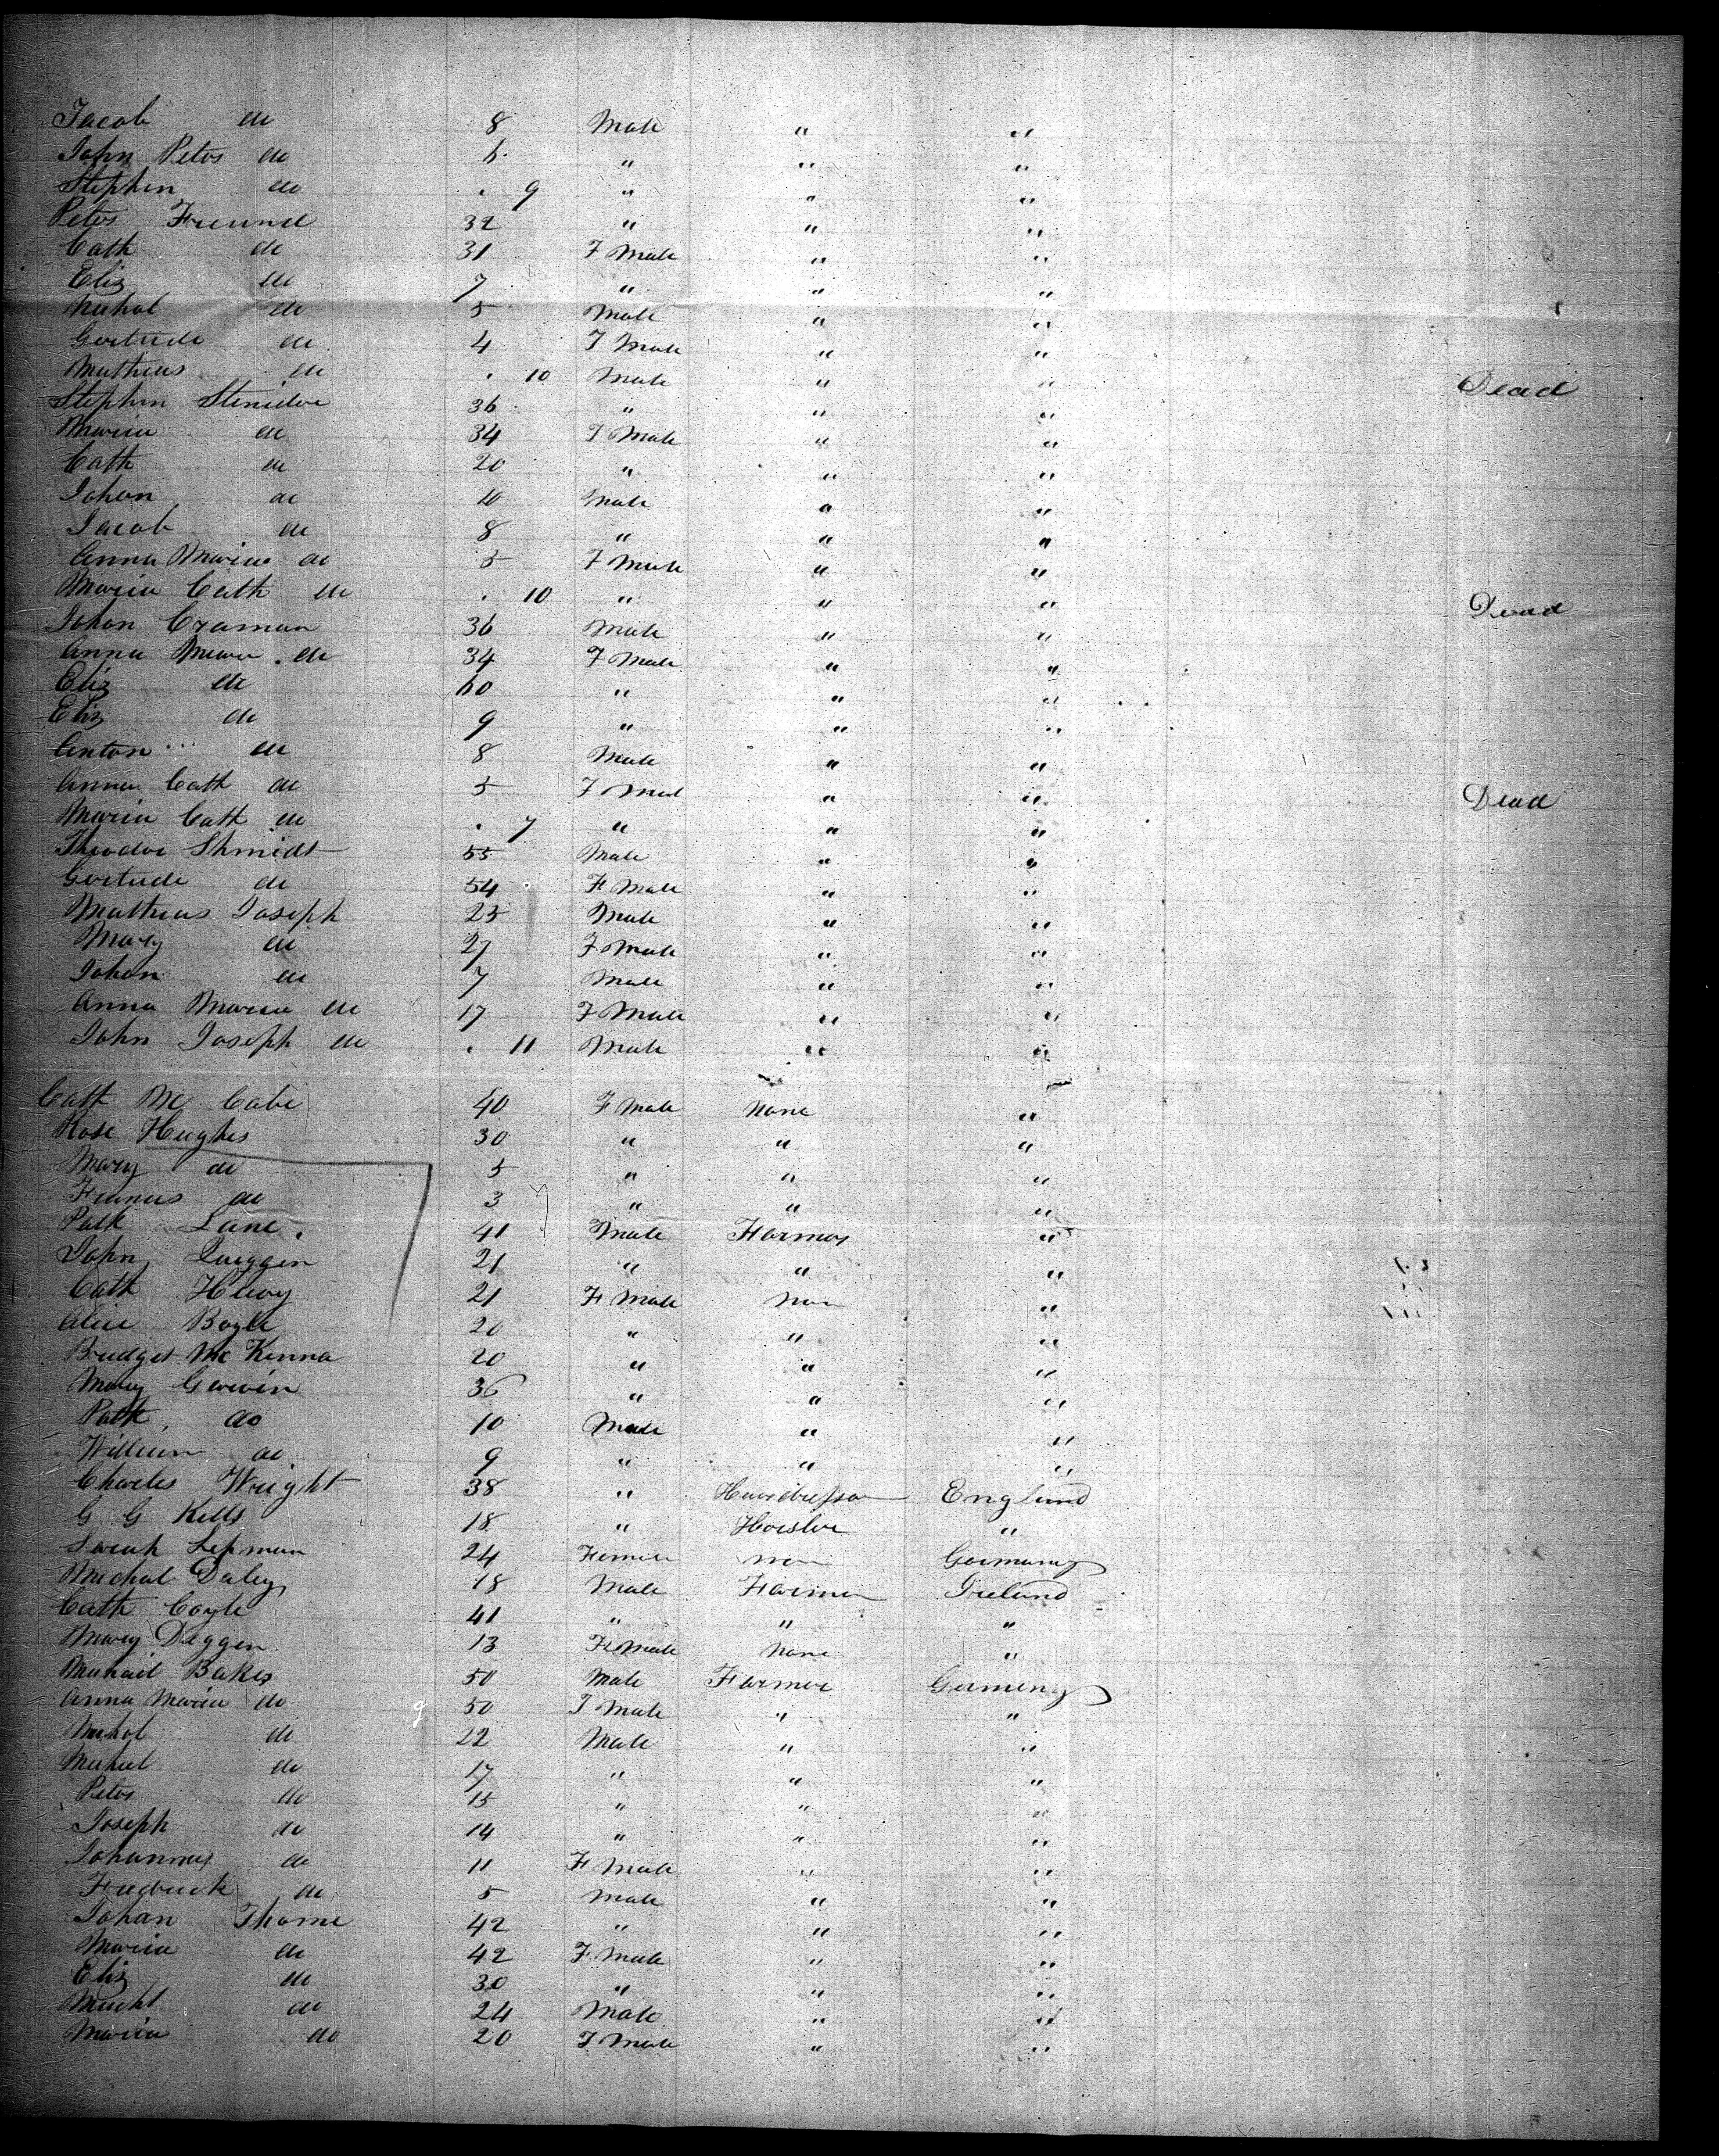 Jacob do 8 Male " "
John Peter do 6 " " "
Stephen do . 9 " " "
Peter Freund 32 " " "
Cath do 31 F Male " "
Eliz do 7 " " "
Michal do 5 Male " "
Gertrude do 4 F Male " "
Mathias do . 10 Male " " Dead
Stephen 36 " " "
Maria do 34 F Male " "
Cath do 20 " " "
Johan do 10 Male " "
Jacob do 8 " " "
Anna Maria do 5 F Male " "
Maria Cath do . 10 " " " Dead
Johan Craman 36 Male " "
Anna Maria do 34 F Male " "
Eliz do 60 " " "
Eliz do 9 " " "
Anton do 8 Male " "
Anna Cath do 5 F Male " " Dead
Maria Cath do . 7 " " "
Theodor Shmidt 55 Male " "
Gertrude do 54 F Male " "
Mathias Joseph 25 Male " "
Mary do 27 F Male " "
Johan do 7 Male " "
Anna Maria do 17 F Male " "
John Joseph do . 11 Male " "
Cath Mc Cabe 40 F Male None "
Rose Hughes 30 " " "
Mary do 5 " " "
Francis do 3 " " "
Patk Lane 41 Male Farmer "
John 21 " " "
Cath 21 F Male Non "
Alice Boyle 20 " " "
Bridget Mc Kenna 20 " " "
Mary Garvin 36 " " "
Patk do 10 Male " "
William do 9 " " "
Charles Wright 38 " Hairdresser England
G G Kells 18 " "
Sarah Lepman 24 Female non Germany
Michal Daley 18 Male Farmer Ireland
Cath Coyle 41 " " "
Mary Deggen 13 F Male None "
Michail Baker 50 Male Farmer Germeny
Anna Maria do 50 F Male " "
Michal do 22 Male " "
Michael do 17 " " "
Peter do 15 " " "
Joseph do 14 " " "
Johannes do 11 F Male " "
Fredrick do 5 Male " "
Johan Thome 42 " " "
Maria do 42 F Male " "
Eliz do 30 " " "
Michl do 24 Male " "
Maria do 20 F Male " "